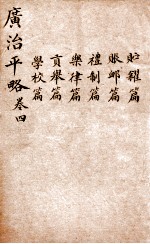 貯糴篇
賬邮篇
禮制篇
樂律篇
貢舉篇
學校篇
廣治平略卷四